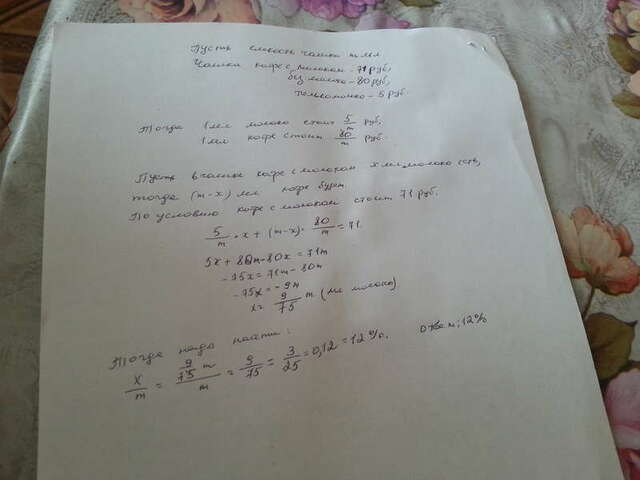 Пусть ёмкость чашки m мл.
Чашка кофе с молоком - 71 руб,
без молока - 80 руб,
только молоко - 5 руб.
Тогда 1 мл молоко стоит 5/m руб,
1 мл кофе стоит 80/m руб.
Пусть в чашке кофе с молоком x мл молоко есть,
тогда (m-x) мл кофе будет.
По условию кофе с молоком стоит 71 руб.
5/m · x + (m-x) · 80/m = 71.
5x + 80m - 80x = 71m
-75x = 71m - 80m
-75x = -9m
x = 9/75 m (мл молоко)
Тогда надо найти:
x/m = (9/75 m)/m = 9/75 = 3/25 = 0,12 = 12%. Ответ: 12%